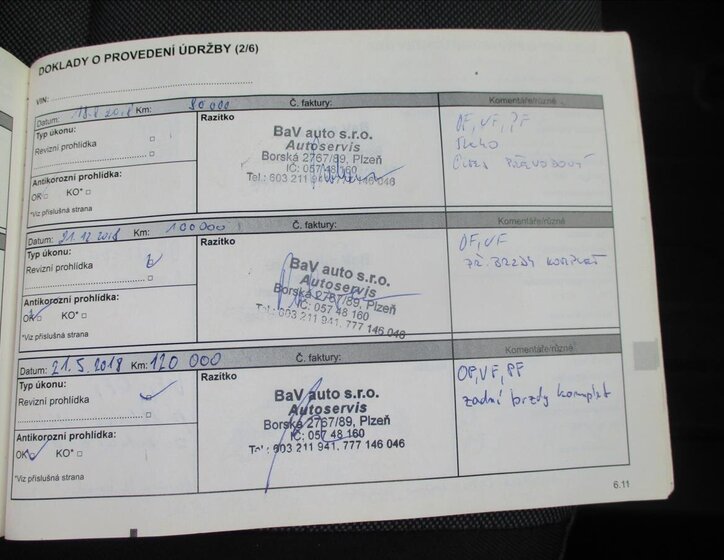 DOKLADY O PROVEDENÍ ÚDRŽBY (2/6)
VIN:
Datum: 18.8.2018 Km: 80 000 Č. faktury: Komentáře/různé
Typ úkonu: Razítko
Revizní prohlídka
Antikorozní prohlídka:
OK KO*
*Viz příslušná strana
BaV auto s.r.o.
Autoservis
Borská 2767/89, Plzeň
IČ: 057 48 160
Tel.: 603 211 941, 777 146 046
OF, VF, PF
Datum: 21.12.2018 Km: 100000 Č. faktury: Komentáře/různé
Typ úkonu: Razítko
Revizní prohlídka
Antikorozní prohlídka:
OK KO*
*Viz příslušná strana
BaV auto s.r.o.
Autoservis
Borská 2767/89, Plzeň
IČ: 057 48 160
Tel.: 603 211 941, 777 146 046
OF, VF
PŘ. BRZDY KOMPLET
Datum: 21.5.2018 Km: 120 000 Č. faktury: Komentáře/různé
Typ úkonu: Razítko
Revizní prohlídka
Antikorozní prohlídka:
OK KO*
*Viz příslušná strana
BaV auto s.r.o.
Autoservis
Borská 2767/89, Plzeň
IČ: 057 48 160
Tel.: 603 211 941, 777 146 046
OF, VF, PF
zadní brzdy komplet
6.11